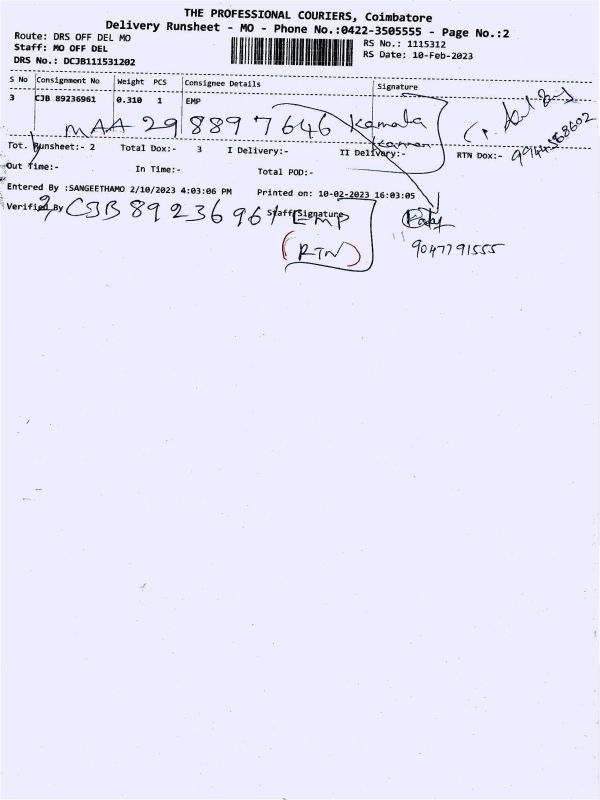 THE PROFESSIONAL COURIERS, Coimbatore
Delivery Runsheet - MO - Phone No.:0422-3505555 - Page No.:2
Route: DRS OFF DEL MO
RS No.: 1115312
Staff: MO OFF DEL
RS Date: 10-Feb-2023
DRS No.: DCJB111531202
S No Consignment No Weight PCS Consignee Details Signature
3 CJB 89236961 0.310 1 EMP
MAA 298897646 Kamala
Kannan
Tot. Runsheet:- 2 Total Dox:- 3 I Delivery:- II Delivery:- RTN Dox:-
Out Time:- In Time:- Total POD:-
Entered By :SANGEETHAMO 2/10/2023 4:03:06 PM Printed on: 10-02-2023 16:03:05
Verified By Staff Signature
CJB 89236961 EMP
(RTN)
9047791555